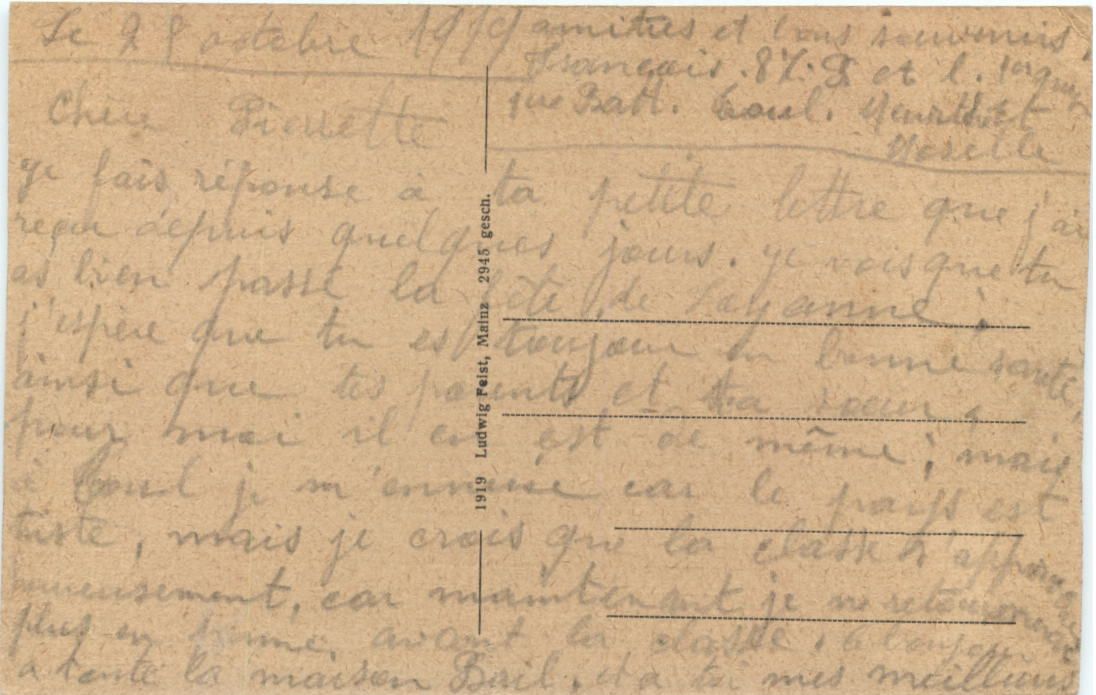 Le 28 octobre 1919
Chère Pierrette
je fais réponse à ta petite lettre que j'ai
reçu depuis quelques jours. je vois que tu
as bien passé la fête de
j'espère que tu es toujour en bonne santé,
ainsi que tes parents et ta soeur,
pour moi il en est de même; mais
à Toul je m'ennuie car le pays est
triste, mais je crois que la classe s'approche
car maintenant je ne retournerai
plus en avant la classe.
a toute la maison Bail, et a toi mes meilleurs
amities et bons souvenirs.
François. 8
Batt. Toul. Meurthe et
Moselle
1919 Ludwig Feist, Mainz 2945 gesch.